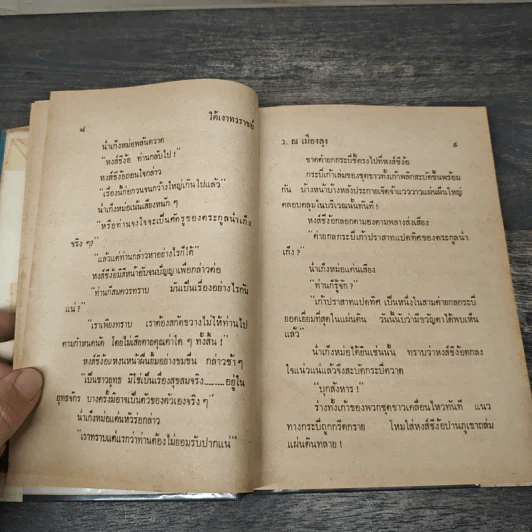 ๘
ใต้เงาทรราชย์
น่ำเก็งหม่อพลันตวาด
"หงส์ซีง้อ ท่านกลับไป!"
หงส์ซีง้อถอนใจกล่าว
"เรื่องนี้ก่อกวนจนกว้างใหญ่เกินไปแล้ว"
น่ำเก็งหม่อเน้นเสียงหนัก ๆ
"หรือท่านจงใจจะเป็นศัตรูของตระกูลน่ำเก็ง
จริง ๆ?"
"แล้วแต่ท่านกล่าวหาอย่างไรก็ได้"
หงส์ซีง้อมีสีหน้าอับจนปัญญาเพื่อกล่าวต่อ
"ท่านก็สมควรทราบ มันเป็นเรื่องอย่างไรกัน
แน่?"
"เราเพียงทราบ เราต้องสกัดขวางไม่ให้ท่านไป
ตามกำหนดนัด โดยไม่เสียดายคุณค่าใด ๆ ทั้งสิ้น!"
หงส์ซีง้อแหงนหน้าฝืนยิ้มอย่างขมขื่น กล่าวช้า ๆ
"เป็นชาวยุทธ มิใช่เป็นเรื่องสุขสมจริง......อยู่ใน
ยุทธจักร บางครั้งมิอาจเป็นตัวของตัวเองจริง ๆ"
น่ำเก็งหม่อแค่นหัวร่อกล่าว
"เราทราบแต่แรกว่าท่านต้องไม่ยอมรับปากแน่"
ว. ณ เมืองลุง
๙
ชายค้ายกกระบี่ชี้ตรงไปที่หงส์ซีง้อ
กระบี่เก้าเล่มของชุดขาวทั้งเก้าพลิกสะบัดขึ้นพร้อม
กัน บ้างหน้าบ้างหลังประกายเจิดจ้าแวววาวแผ่ผืนใหญ่
คลอบคลุมในบริเวณนั้นทันที!
หงส์ซีง้อกลอกตามองตามพลางส่งเสียง
"ค่ายกลกระบี่เก้าปราสาทแปดทิศของตระกูลน่ำ
เก็ง?"
น่ำเก็งหม่อแค่นเสียง
"ท่านก็รู้จัก?"
"เก้าปราสาทแปดทิศ เป็นหนึ่งในสามค่ายกลกระบี่
ยอดเยี่ยมที่สุดในแผ่นดิน วันนี้นับว่ามีขวัญตาได้พบเห็น
แล้ว"
น่ำเก็งหม่อได้ยินเช่นนั้น ทราบว่าหงส์ซีง้อตกลง
ใจแน่วแน่แล้วจึงสะบัดกระบี่ตวาด
"บุกสังหาร!"
ร่างทั้งเก้าของพวกชุดขาวเคลื่อนไหวทันที แนว
ทางกระบี่ถูกกรีดกราย โหมใส่หงส์ซีง้อปานภูเขาถล่ม
แผ่นดินทลาย!